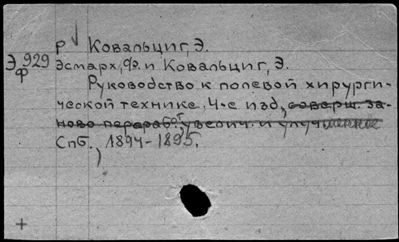 р Ковальциг, Э.
Э 929
ф
Эсмарх, Ф. и Ковальциг, Э.
Руководство к полевой хирурги-
ческой технике. 4-е изд., соверш. за-
ново перераб., увелич. и улучшенное
Спб. 1894-1895.